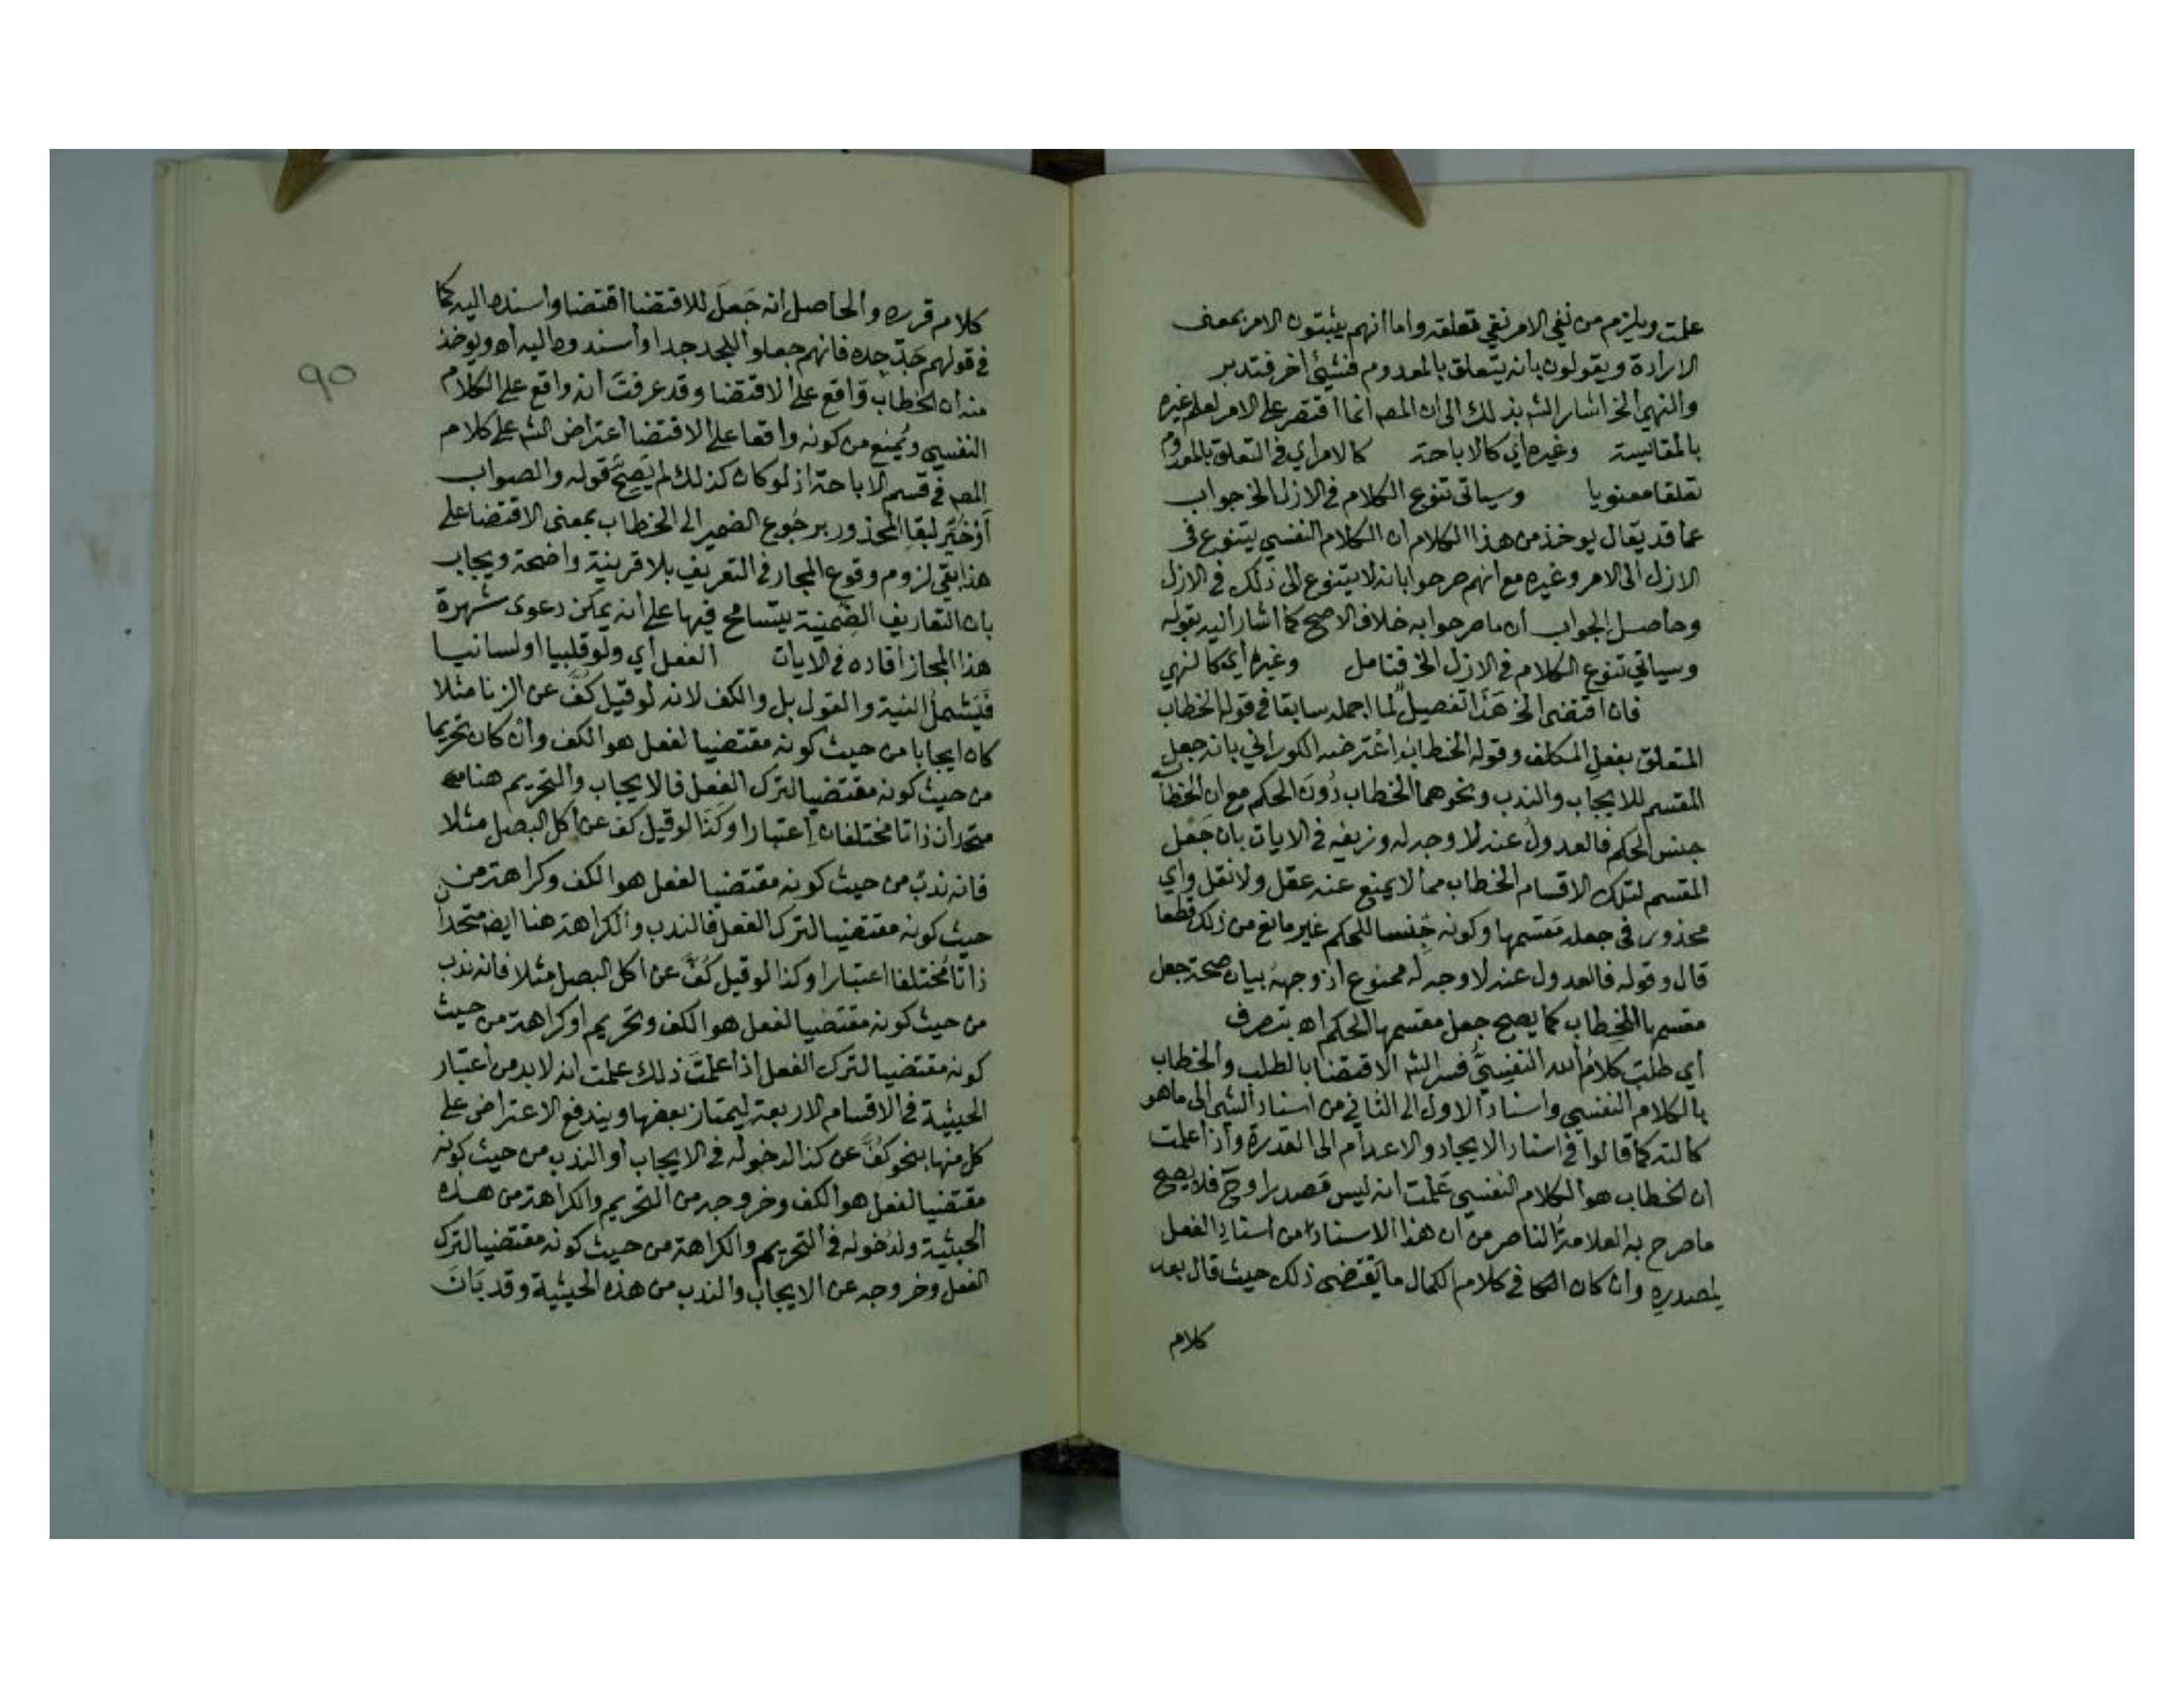 علمت ويلزم من نفي الامر نفي تعلقه واما انهم يثبتون الامر بمعنى
الارادة ويقولون بانه يتعلق بالمعدوم فشيئ اخر فتدبر
والنهي الخ اشار الشه بذلك الى ان المص انما اقتصر على الامر لعلم غيره
بالمقايسة وغيره اي كالاباحة كالامر اي في التعلق بالمعدوم
تعلقا معنويا وسياتى تنوع الكلام في الازل الخ جواب
عما قد يقال يوخذ من هذا الكلام ان الكلام النفسي يتنوع في
الازل الى الامر وغيره مع انهم صرحوا بانه لا يتنوع الى ذلك في الازل
وحاصل الجواب ان ما صرحوا به خلاف الاصح كما اشار اليه بقوله
وسياتي تنوع الكلام في الازل الخ فتامل وغيره اي كالنهي
فان اقتضى الخ هَذَا تفصيلٌ لما اجمله سابقا في قوله الخطاب
المتعلق بفعل المكلف وقوله الخطاب اعْترضه الكوراني بانه جعل
المقسم للايجاب والندب ونحوهما الخطاب دُونَ الحكم مع ان الخطاب
جنس الحكم فالعدول عنه لا وجه له وزيفه في الايات بان جَعْل
المقسم لتلك الاقسام الخطاب مما لا يمنع عنه عقل ولا نقل واي
محذور في جعله مَقسمها وكونه جِنسا للحكم غير مانع من ذلك قطعا
قال وقوله فالعدول عنه لا وجه له ممنوع اذ وجهه بيان صحة جعل
مقسمها الخطاب كما يصح جعل مقسمها الحكم اه بتصرف
اي طلبَ كلامُ الله النفسيُّ فسر الشه الاقتضا بالطلب والخطاب
بالكلام النفسي واسناد الاول الى الثاني من اسناد الشي الى ما هو
كالته كما قالوا في اسناد الايجاد والاعدام الى القدرة واذا علمت
ان الخطاب هو الكلام النفسي عَلمْت انه ليس مَصدرا وح فلا يصح
ما صرح به العلامة الناصر من ان هذا الاسناد من اسناد الفعل
لمصدره وان كان في كلام الكمال ما يَقتضى ذلك حيث قال بعد
كلام
٩٥
كلام قرره والحاصل انه جَعلَ للاقتضا اقتضا واسنده اليه كما
في قولهم جَدّ جده فانهم جعلوا للجد جدا واسندوه اليه اه ويوخذ
منه ان الخطاب واقع على الاقتضا وقد عرفتَ انه واقع على الكلام
النفسي ويُمنع من كونه واقعا على الاقتضا اعتراض الشه على كلام
المص في قسم الاباحة اذ لو كان كذلك لم يَصِحَّ قوله والصواب
أوْ خُيِّر لبقا المحذور برجُوع الضمير الى الخطاب بمعنى الاقتضا على
هذا بقى لزوم وقوع المجاز في التعريف بلا قرينة واضحة ويجاب
بان التعاريف الضمنية يتسامح فيها على انه يمكن دعوى شهرة
هذا المجاز افاده في الايات الفعل اي ولو قلبيا او لسانيا
فَيَشمل النية والقول بل والكف لانه لو قيل كُفَّ عن الزنا مثلا
كان ايجابا من حيث كونه مقتضيا لفعل هو الكف وان كان تحريما
من حيث كونه مقتضيا لترك الفعل فالايجاب والتحريم هنا
متحدان ذاتا مختلفان اعتبارا وكَذا لو قيل كف عن اكل البصل مثلا
فانه ندب من حيث كونه مقتضيا لفعل هو الكف وكراهة من
حيث كونه مقتضيا لترك الفعل فالندب والكراهة هنا ايضا متحدان
ذاتا مُختلفا اعتبارا وكذا لو قيل كُفَّ عن اكل البصل مثلا فانه ندب
من حيث كونه مقتضيا لفعل هو الكف وتحريم او كراهة من حيث
كونه مقتضيا لترك الفعل اذا علمتَ ذلك علمت انه لابد من اعتبار
الحيثية في الاقسام الاربعة ليمتاز بعضها ويندفع الاعتراض على
كل منها بنحو كُفَّ عن كذا لدخوله في الايجاب او الندب من حيث كونه
مقتضيا لفعل هو الكف وخروجه من التحريم والكراهة من هذه
الحيثية ولدُخوله في التحريم والكراهة من حيث كونه مقتضيا لترك
الفعل وخروجه عن الايجاب والندب من هذه الحيثية وقد بَانَ